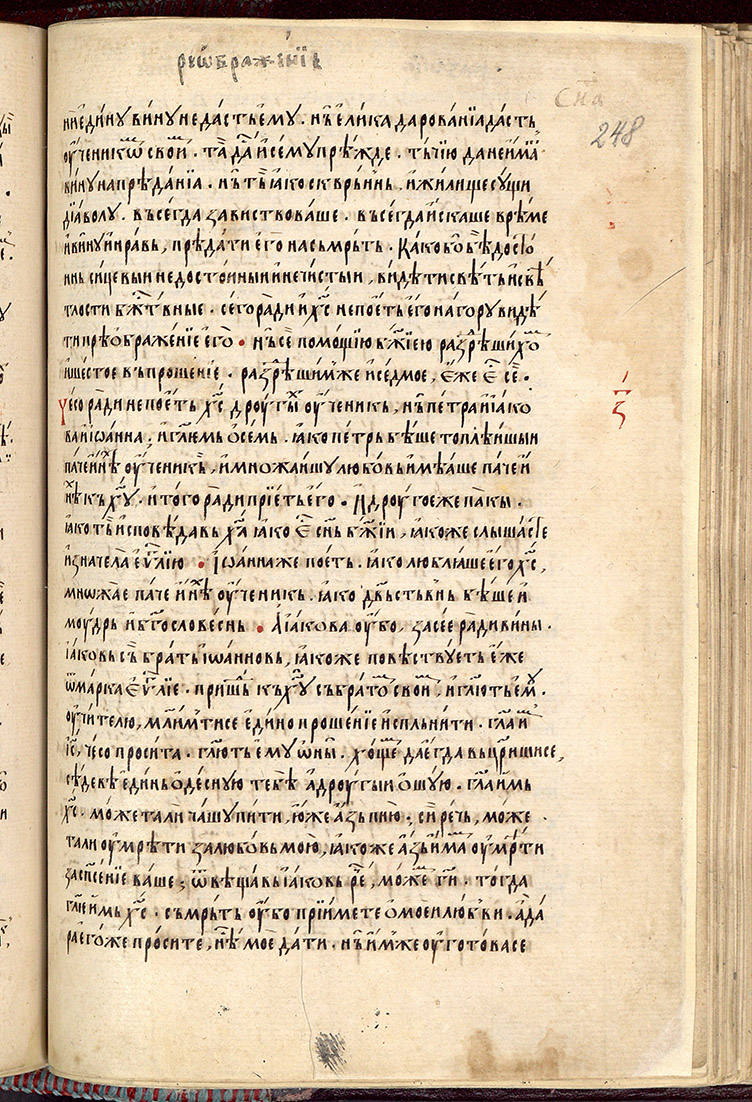 реѡбраженїе
сна
248
ни едину вину не дасть ему. нь елика дарованїа дасть
оученикѡм свои. та да и сему прѣжде. тъчїю да не има
вину на прѣданїа. нь тъ іако сквръннь, и жилище сущи
дїаволу. въсегда завиствоваше. въсегда искаше врѣме
и вину и нравь, прѣдати его на съмрьть. Како бо бѣ досто
инь сицевыи недостоиныи и нечистыи, видѣти свѣть и свѣ
тлости бжтвьные. сего ради и хс не поеть его на гору видѣ
ти прѣображенїе его. нь се помощїю бжїею разрѣшихѡ
и шестое въпрошенїе. разрѣшим же и седмое, еже е се.
Чесо ради не поеть хс другыи оученикь, нь петра и іако
ва и іѡанна; и глюмь о семь. іако петрь бѣше топлѣишыи
паче инѣ оученикь, и множаишу любовь имѣаше паче и
нѣ къ ху. и того ради прїеть его. И другое же пакы.
іако тъ исповѣдавь ха іако е снь бжїи, іакоже слышасте
из начела еѵлїю. Іѡанна же поеть. іако люблıаше его хс,
мнѡжае паче инѣ оученикь. іако дѣвьствьнь бѣше и
моудрь и бгословесьнь. А іакова оубо, за сее ради вины.
іаковь сь братѡ іѡанновь, іакоже повѣствуеть еже
ѿ марка еѵлїе. пришь къ ху съ братѡ свои, и глють ем.
оучителю, млим ти се едино прошенїе испльнити. гла и
іс, чесо просита. глють ему ѡны. хоще да егда въцришисе,
сѣдевѣ единь одесную тебѣ а другыи ошую. гла имь
хс. можета ли чашу пити, юже азь пїю; си речь, може
та ли оумрѣти за любовь мою, іакоже азь има оумрѣти
за спсенїе ваше; ѿвѣща въ іаковь ре, може ги. тогда
гле имь хс. съмрьть оубо прїимете о моеи любви. а да
ра егоже просите, нѣ мое дати. нь имже оуготовасе
з